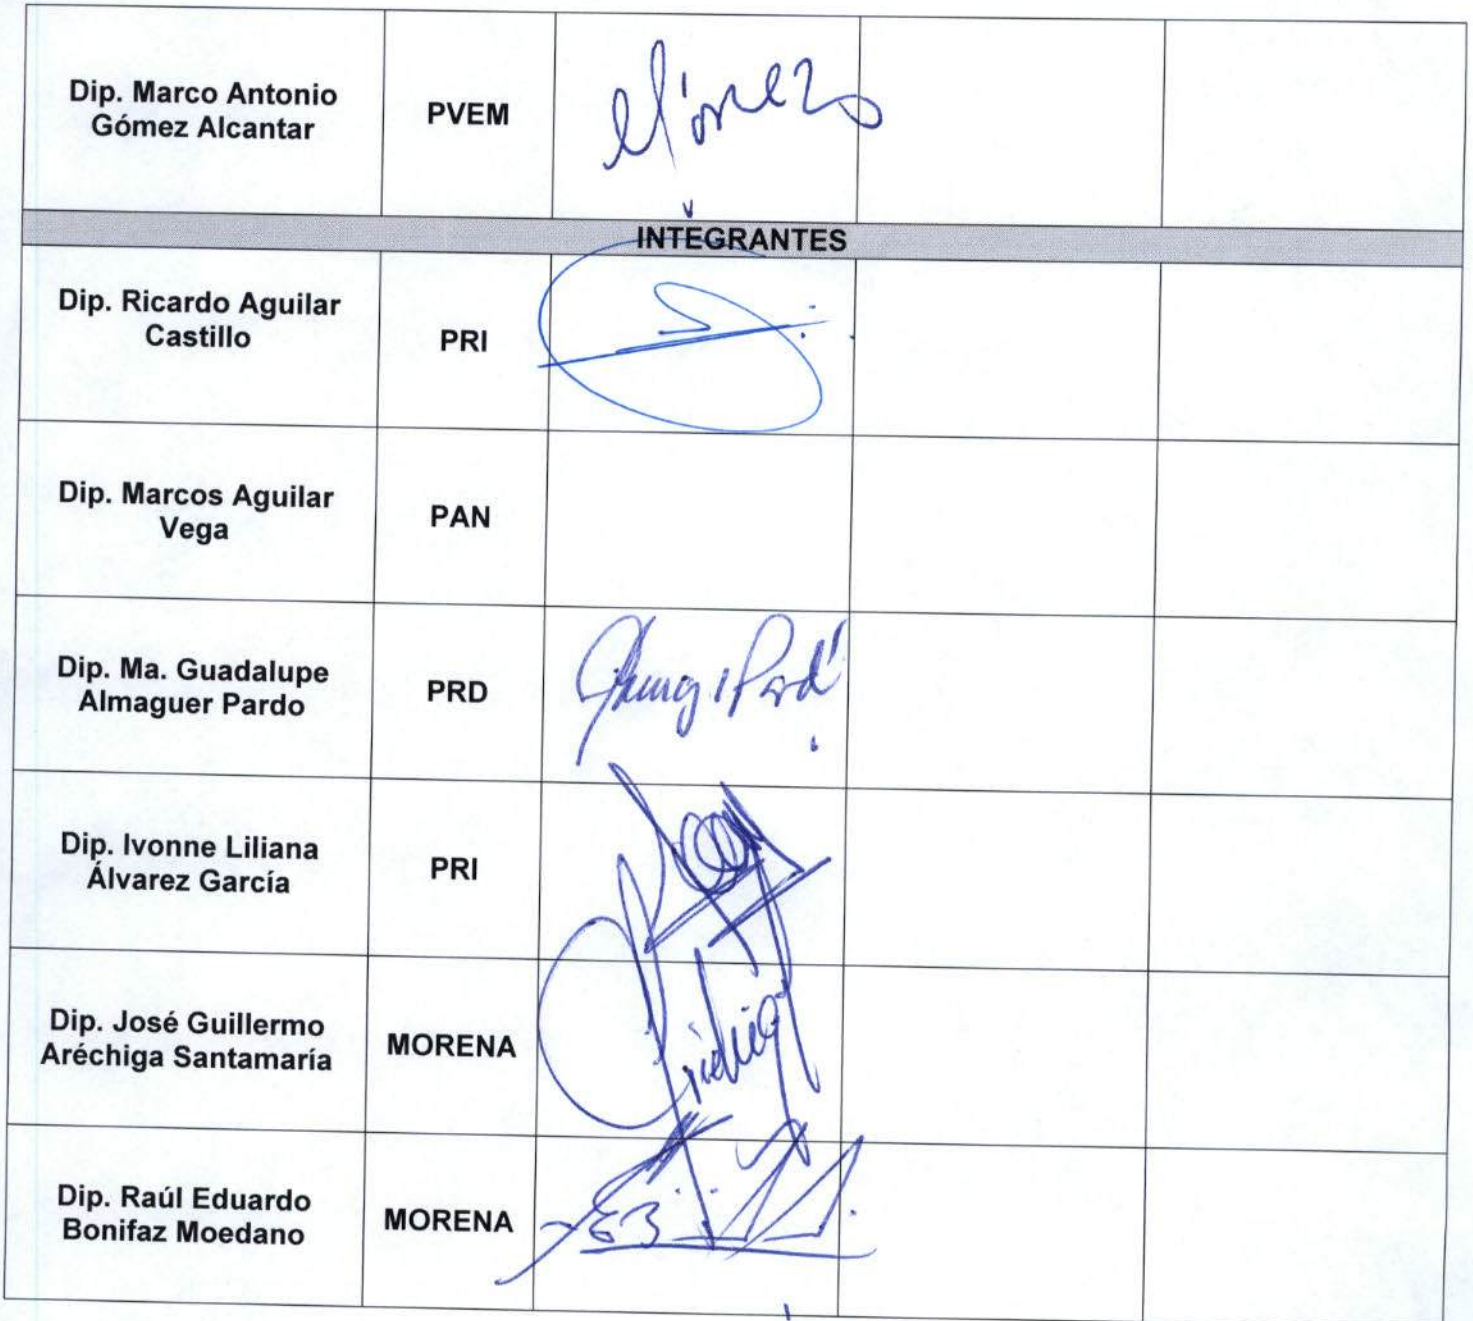 Dip. Marco Antonio
Gómez Alcantar
PVEM
INTEGRANTES
Dip. Ricardo Aguilar
Castillo
PRI
Dip. Marcos Aguilar
Vega
PAN
Dip. Ma. Guadalupe
Almaguer Pardo
PRD
Dip. Ivonne Liliana
Álvarez García
PRI
Dip. José Guillermo
Aréchiga Santamaría
MORENA
Dip. Raúl Eduardo
Bonifaz Moedano
MORENA